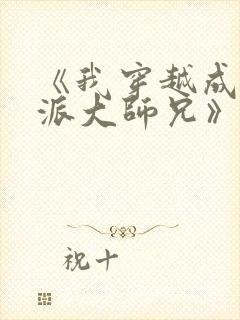 《我穿越成
派大师兄》
祝十